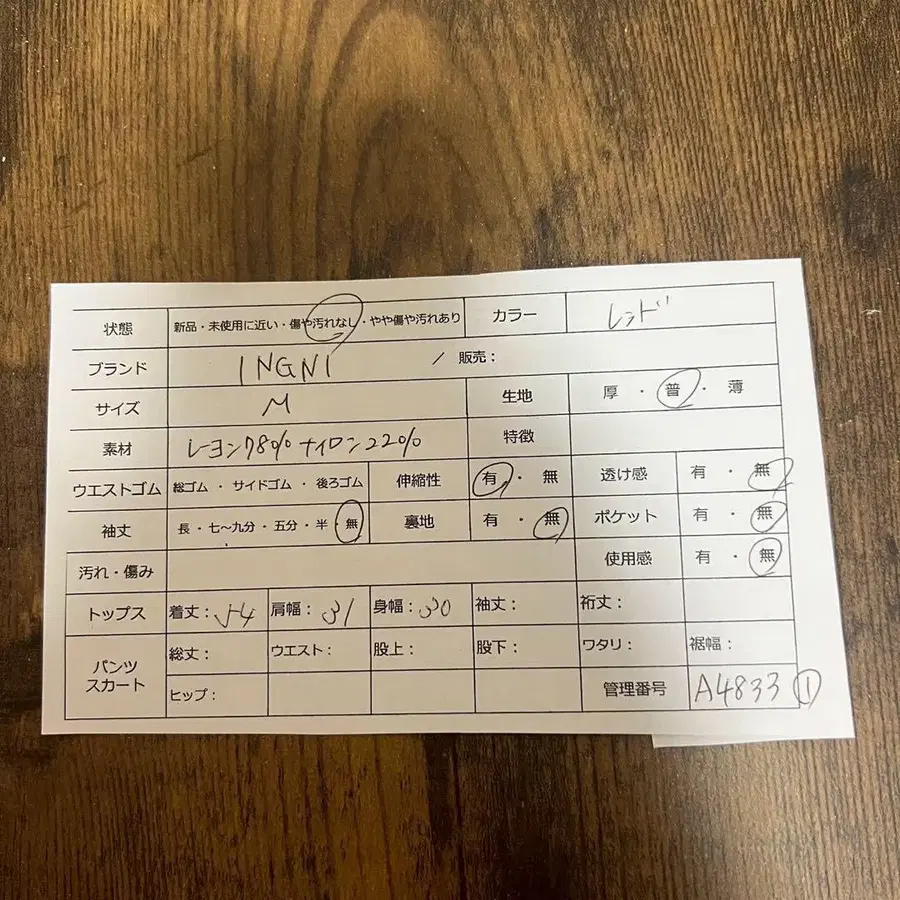 状態 新品・未使用に近い・傷や汚れなし・やや傷や汚れあり カラー レッド
ブランド INGNI / 販売：
サイズ M 生地 厚・普・薄
素材 レーヨン78% ナイロン22% 特徴
ウエストゴム 総ゴム・サイドゴム・後ろゴム 伸縮性 有・無 透け感 有・無
袖丈 長・七〜九分・五分・半・無 裏地 有・無 ポケット 有・無
汚れ・傷み 使用感 有・無
トップス 着丈：54 肩幅：31 身幅：30 袖丈： 裄丈：
パンツ スカート 総丈： ウエスト： 股上： 股下： ワタリ： 裾幅：
ヒップ： 管理番号 A4833 ①